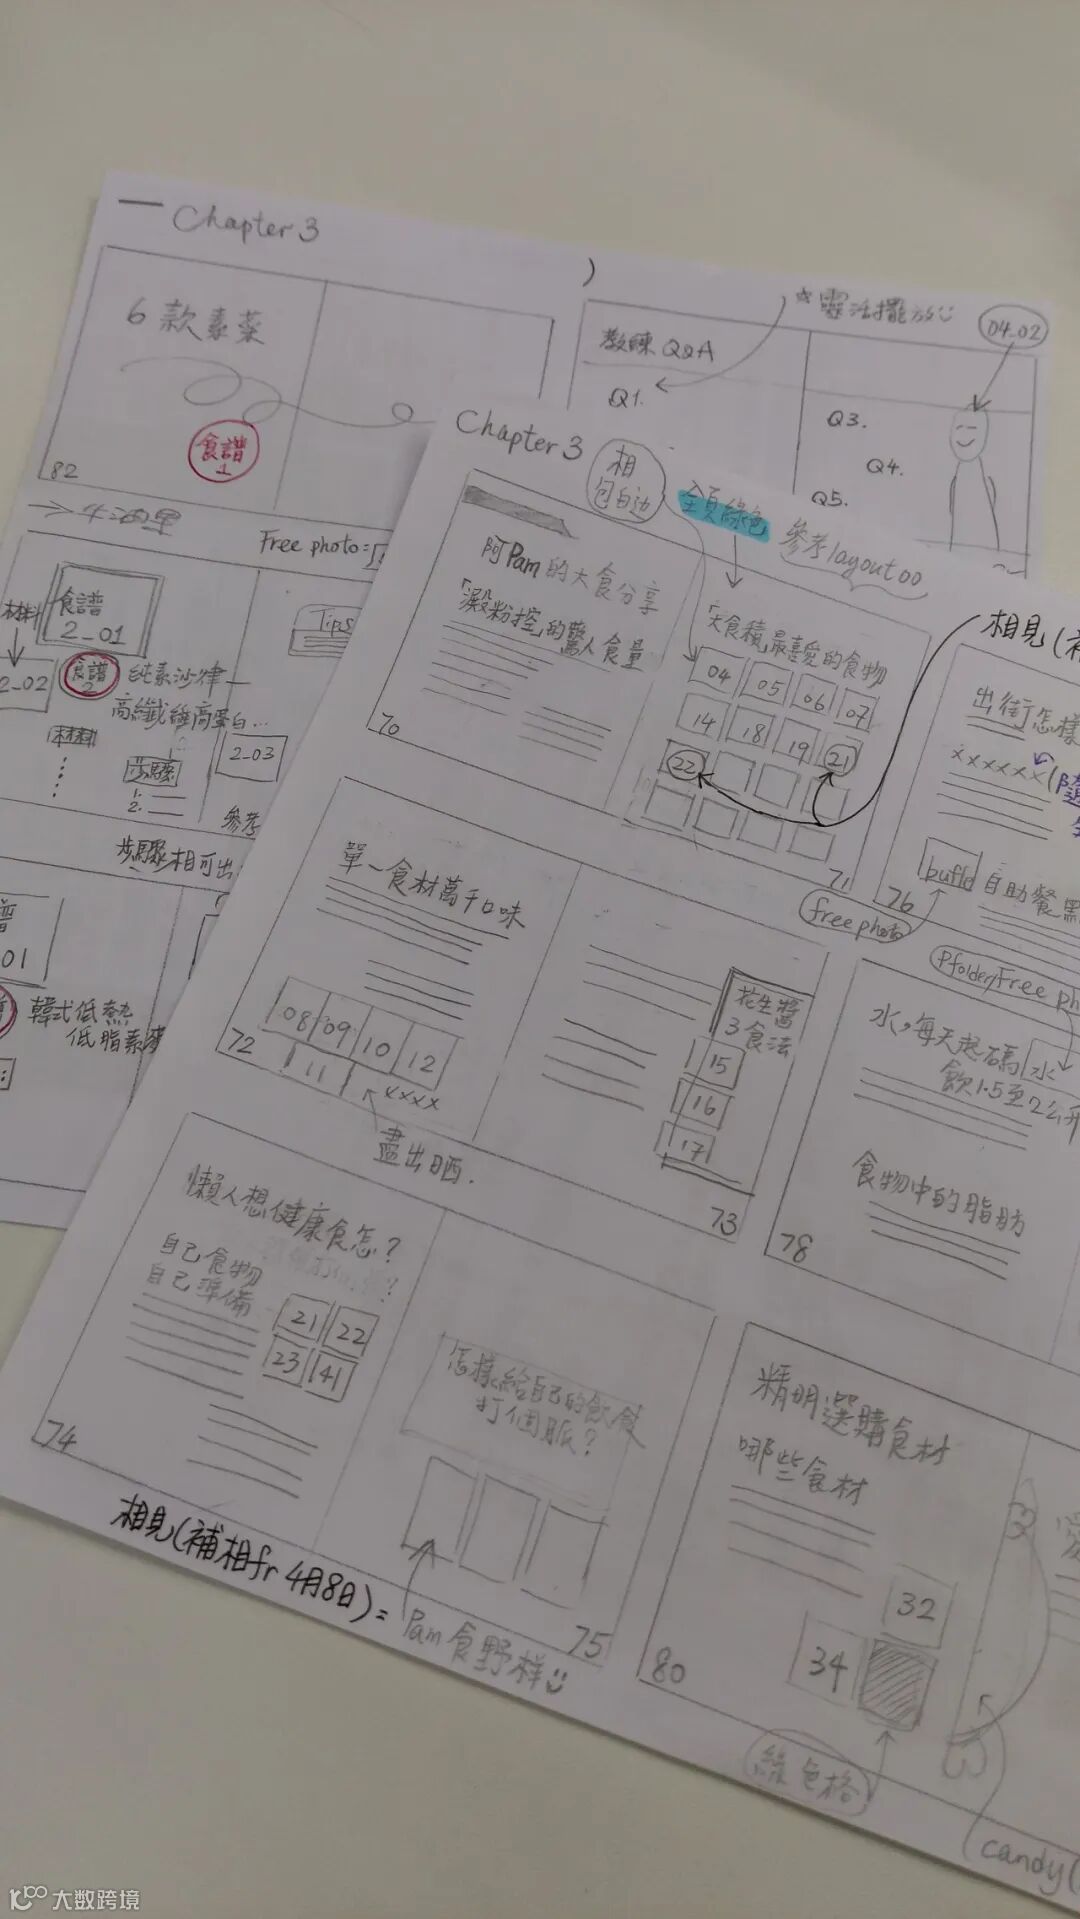 Chapter 3
6款素菜
食譜
1
82
教練Q&A
*靈活擺放
04_02
Q1.
Q3.
Q4.
Q5.
Free photo=
食譜
2_01
材料
2_02
食譜
2
純素沙律
高纖維高蛋白...
Tips
材料
步驟
1.
2.
2_03
參考
步驟相可出
01
韓式低熱
低脂素
Chapter 3
相
包白边
全頁綠色
參考layout00
阿Pam的大食分享
「澱粉控」的驚人食量
70
「大食積」最喜愛的食物
04 05 06 07
14 18 19 21
22
71
相見(補
出街怎樣
xxxxxx
buffet
自助餐
76
free photo
單一食材萬千口味
08 09 10 12
11
xxxx
72
盡出晒.
花生醬
3食法
15
16
17
73
Pfolder/Free ph
水,每天起碼
飲1.5至2公升
水
食物中的脂肪
78
懶人想健康食怎?
自己食物
自己準備
21 22
23 41
74
怎樣給自己的飲食
打個脈?
75
相見(補相fr 4月8日)=
Pam食野樣
精明選購食材
哪些食材
32
34
80
綠色格
candy(
大数跨境